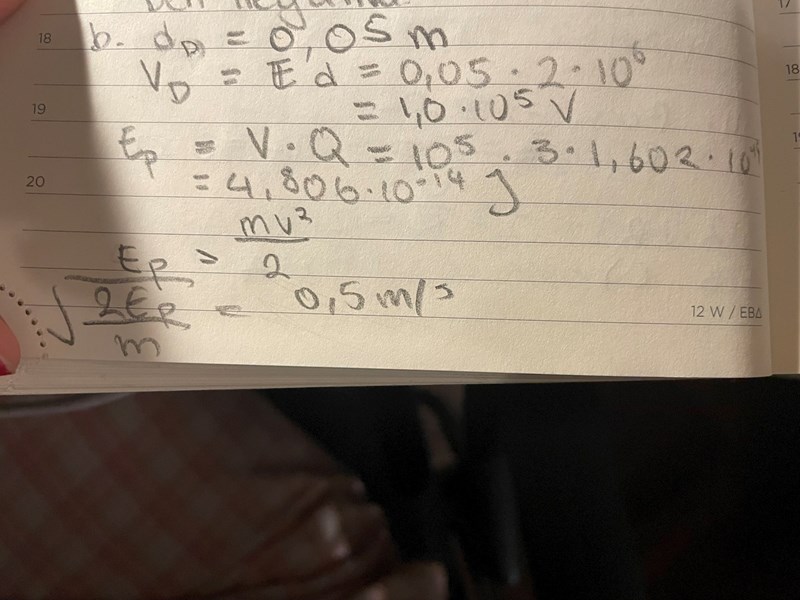 18
b. d_D = 0,05 m
V_D = E d = 0,05 · 2 · 10⁶
19
= 1,0 · 10⁵ V
E_p = V · Q = 10⁵ · 3 · 1,602 · 10
20
= 4,806 · 10⁻¹⁴ J
E_p = mv²/2
√(2E_p/m) = 0,5 m/s
12 W / EB
17
18